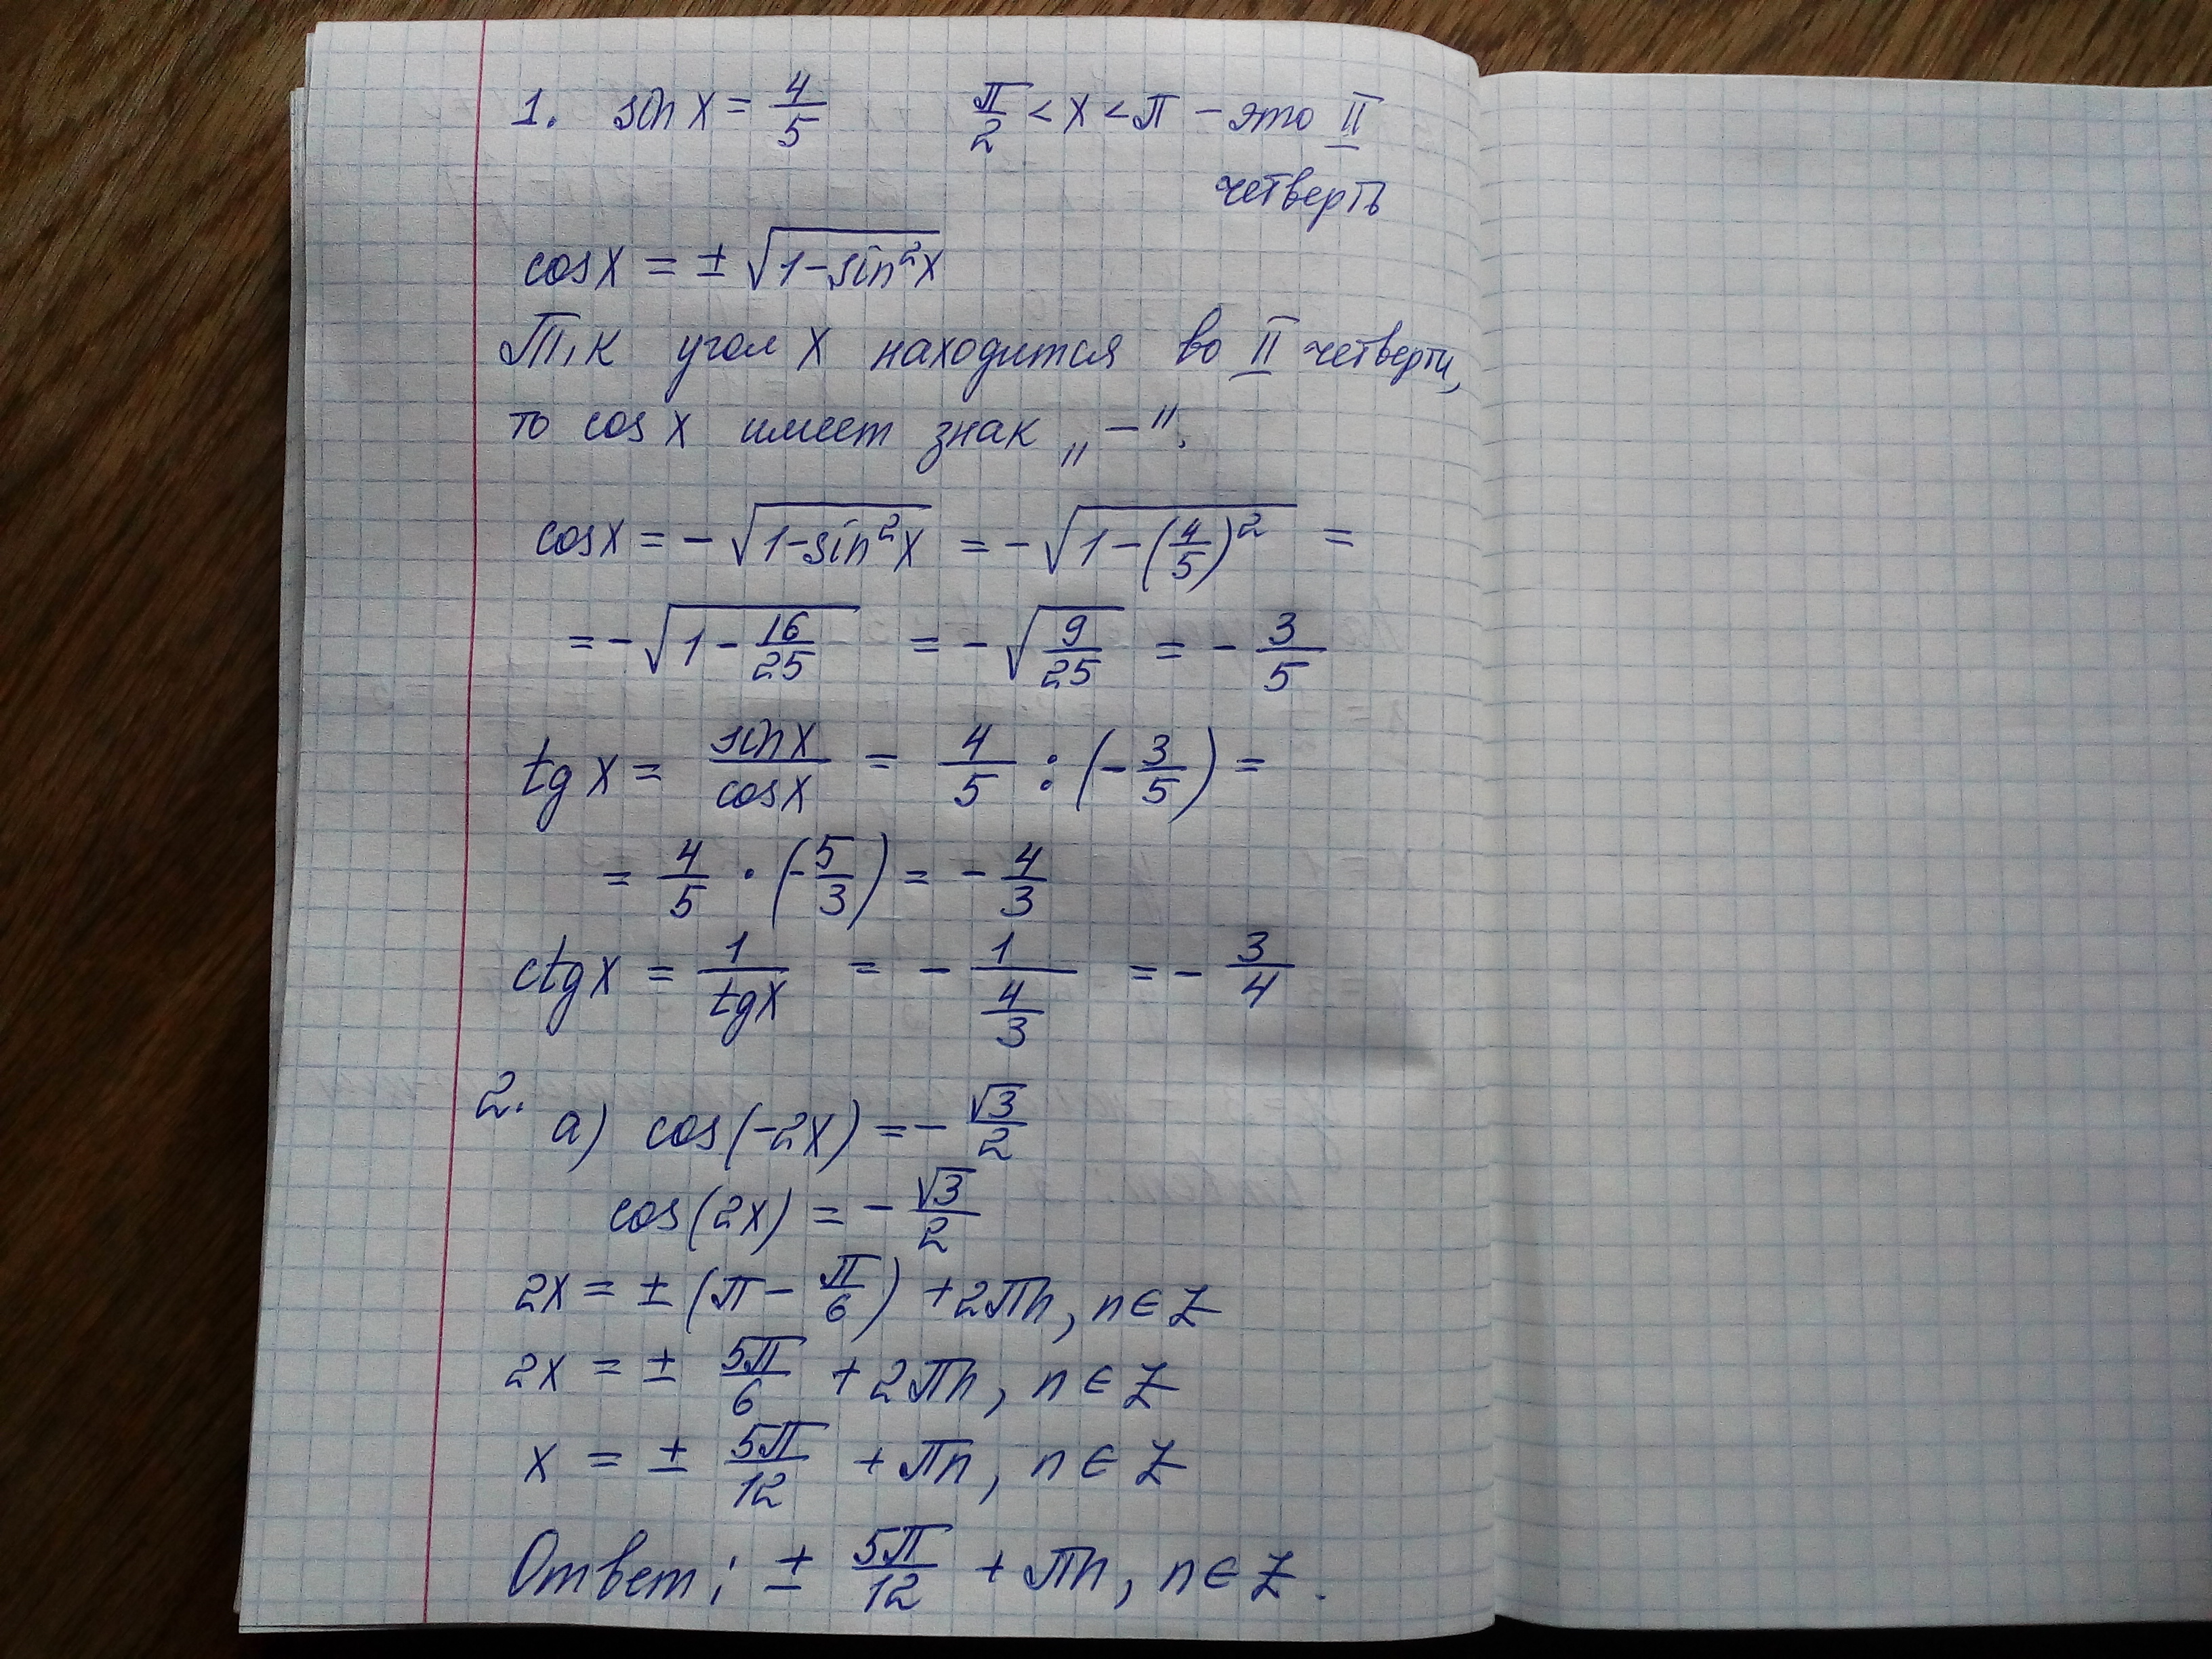 1. sin x = 4/5 π/2 < x < π – это II
четверть
cos x = ± √(1-sin²x)
Т.к угол x находится во II четверти,
то cos x имеет знак „–".
cos x = - √(1-sin²x) = - √(1-(4/5)²) =
= - √(1 - 16/25) = - √(9/25) = - 3/5
tg x = sin x/cos x = 4/5 : (- 3/5) =
= 4/5 · (- 5/3) = - 4/3
ctg x = 1/tg x = - 1/(4/3) = - 3/4
2. а) cos(-2x) = - √3/2
cos(2x) = - √3/2
2x = ± (π - π/6) + 2πn, n ∈ Z
2x = ± 5π/6 + 2πn, n ∈ Z
x = ± 5π/12 + πn, n ∈ Z
Ответ: ± 5π/12 + πn, n ∈ Z.